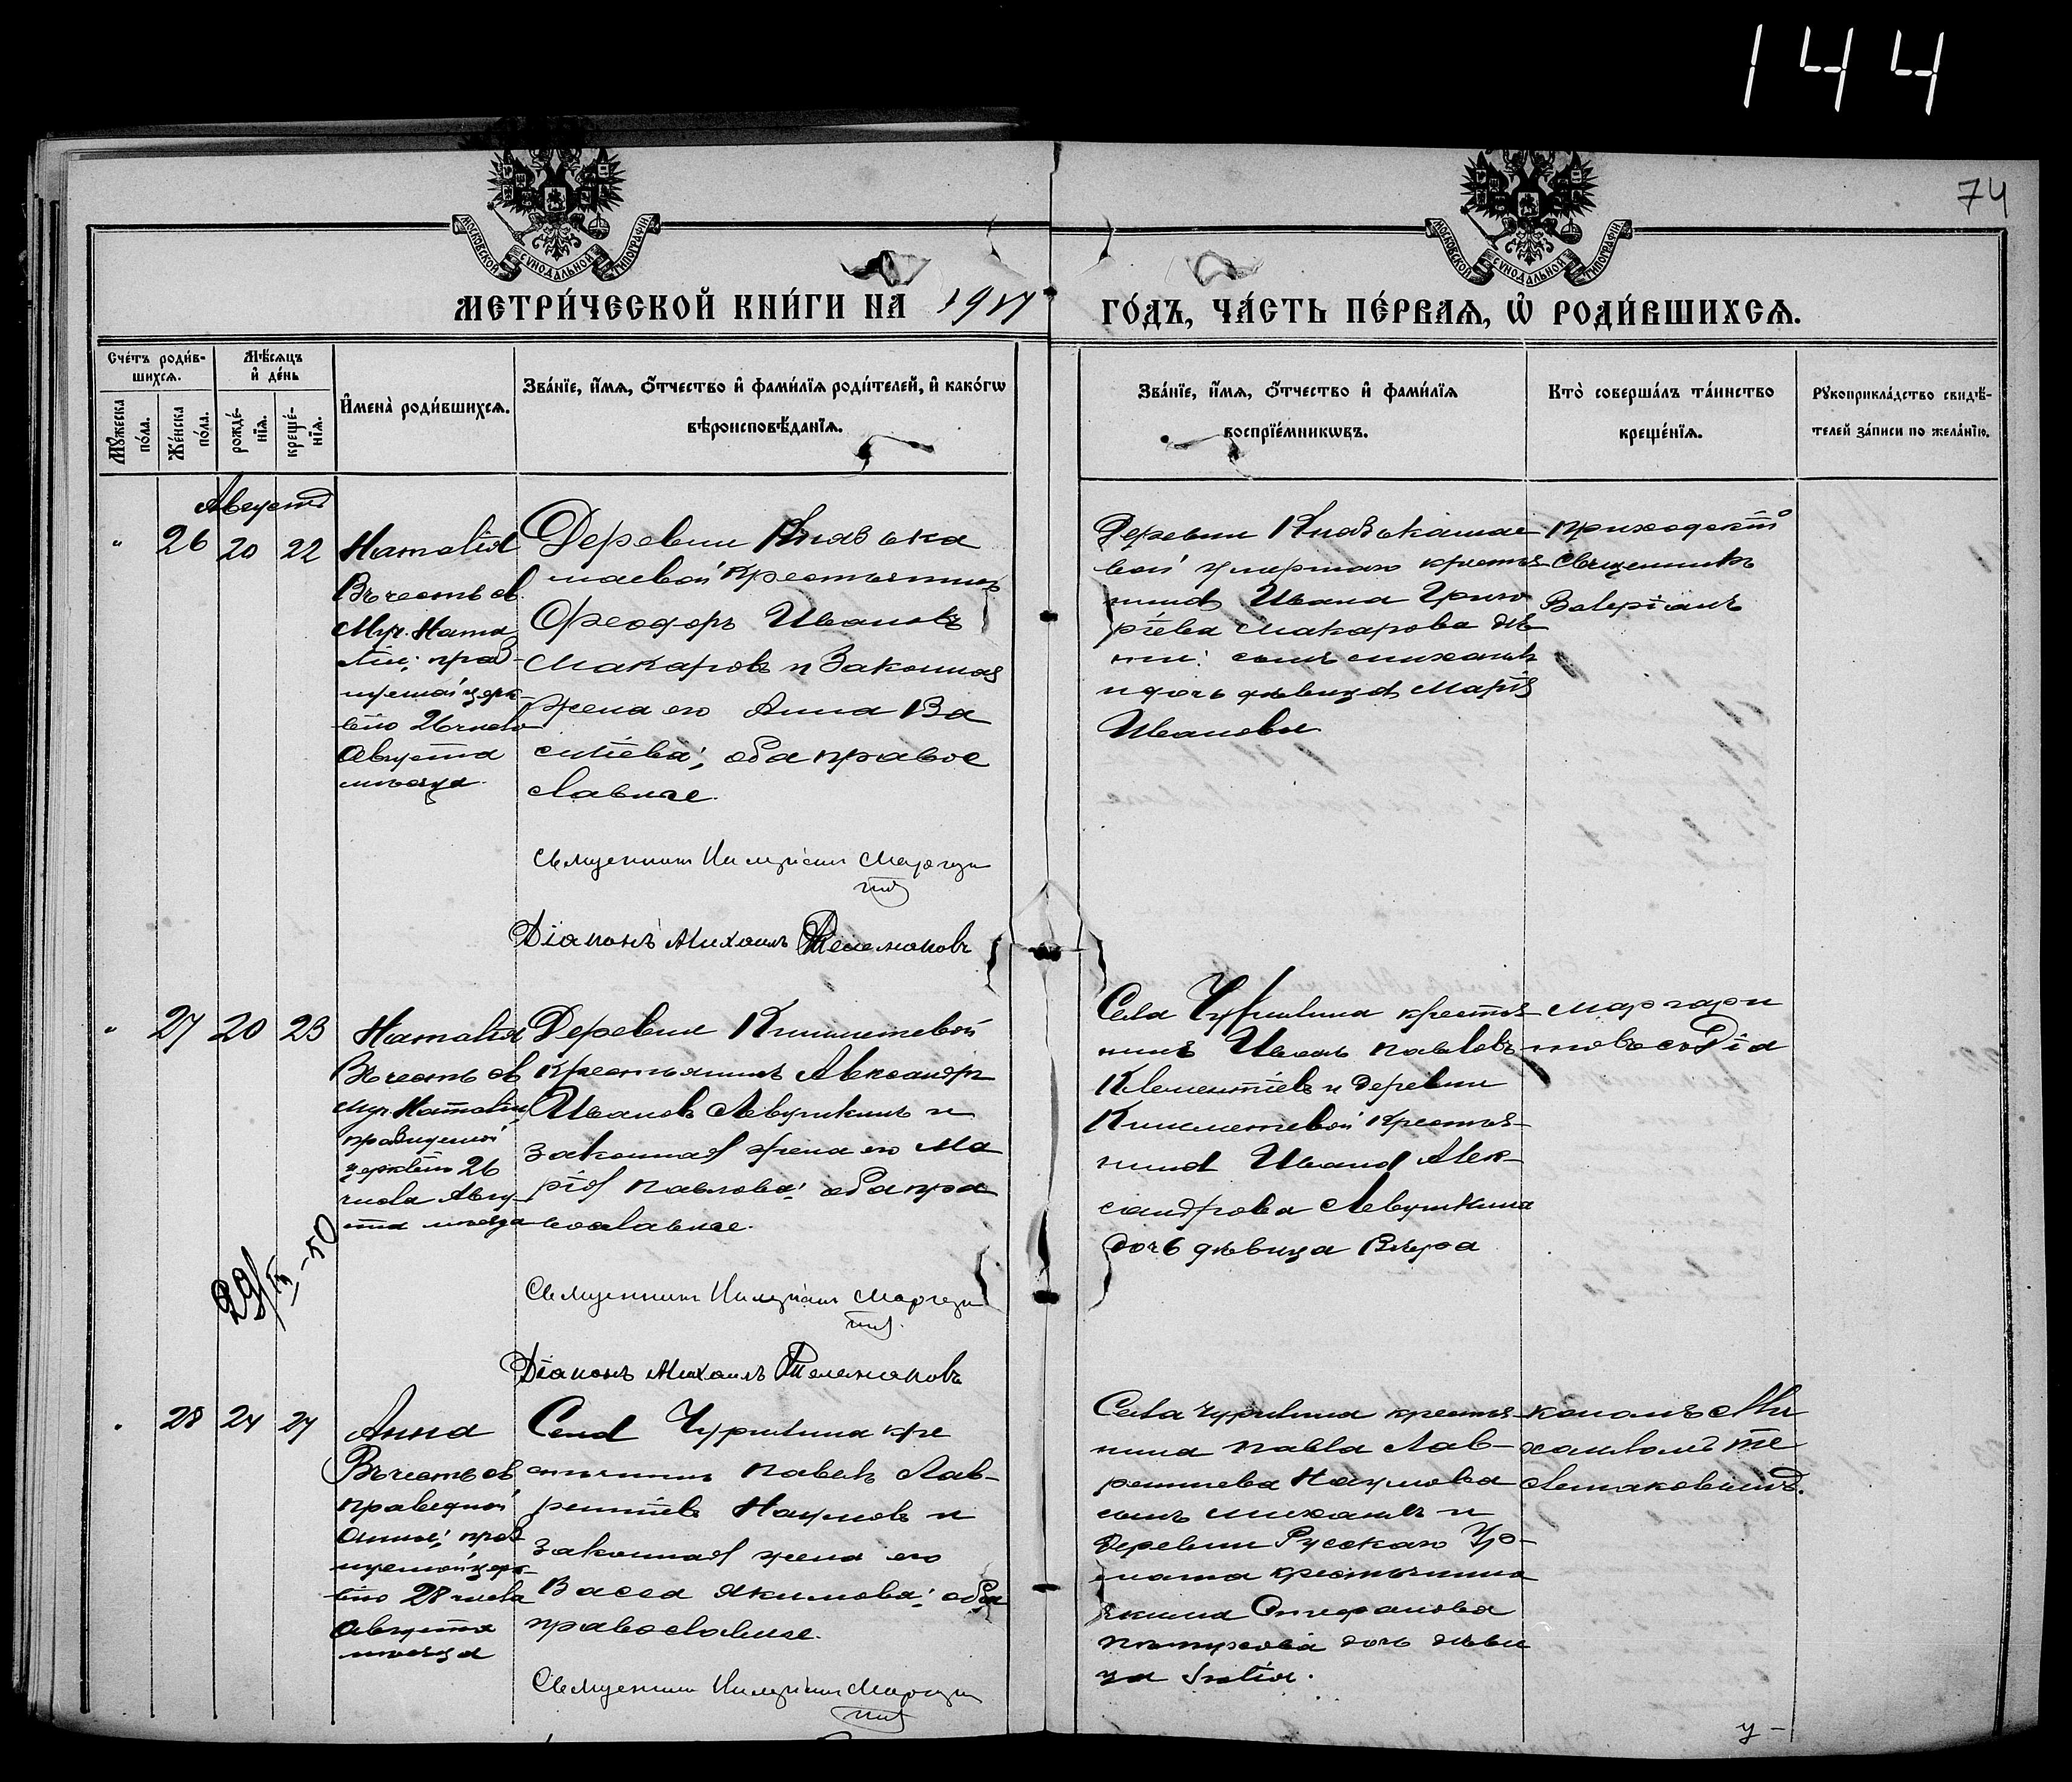 144
74
МОСКОВСКОЙ СѴНОДАЛЬНОЙ ТИПОГРАФІИ
МОСКОВСКОЙ СѴНОДАЛЬНОЙ ТИПОГРАФІИ
МЕТРИ́ЧЕСКОЙ КНИ́ГИ НА
ГО́ДЪ, ЧА́СТЬ ПЕ́РВАѦ, Ѽ РОДИ́ВШИХСѦ.
Сче́тъ роди́в-
шихсѧ.
Мѣ́сѧцъ
и҆ де́нь
Мꙋ́жеска
по́ла.
Же́нска
по́ла.
рожде́-
нїѧ.
креще́-
нїѧ.
И҆мена̀ роди́вшихсѧ.
Зва́нїе, и҆́мѧ, ѻ҆́тчество и҆ фами́лїѧ роди́телей, и҆ како́гѡ
вѣроисповѣ́данїѧ.
Зва́нїе, и҆́мѧ, ѻ҆́тчество и҆ фами́лїѧ
воспрїе́мникѡвъ.
Кто̀ соверша́лъ та́инство
креще́нїѧ.
Рꙋкоприкла́дство свидѣ́-
телей за́писи по жела́нїю.
Августъ
26 20 22
Наталія
Въ честь св.
Муч. Ната
ліи; праз
нуемой церк
вію 26 числа
Августа
мѣсяца.
Деревни
маевой крестьянинъ
Ѳеодоръ Ивановъ
Макаровъ и законная
жена его Анна Ва
силіева; оба правос
лавные.
Священникъ Маргари
товъ
Діаконъ Михаилъ
Деревни
вой умершаго крестья
нина Ивана Григо
ріева Макарова дѣ
ти: сынъ Михаилъ
и дочь дѣвица Марія
Ивановы
Приходскій
Священникъ
Валеріанъ
27 20 23
Наталія
Въ честь св
Муч. Наталіи,
празнуемой
церковію 26
числа Авгу
ста мѣсяца
Деревни
крестьянинъ Александръ
Ивановъ Левушкинъ и
законная жена его Ма
рія Павлова; оба пра
вославные.
Священникъ Маргари
товъ.
Діаконъ Михаилъ
Села Чурилина крестья
нинъ Иванъ Павловъ
Клементіевъ и деревни
крестья-
нина Ивана Алек-
сандрова Левушкина
дочь дѣвица Вѣра
Маргари
товъ съ Діа
28 24 27
Анна
Въ честь св
праведной
Анны; праз
нуемой церк
вію 28 числа
Августа
мѣсяца
Села Чурилина кре
стьянинъ Павелъ Лав-
рентіевъ Наумовъ и
законная жена его
Васса Якимова; оба
православные.
Священникъ Маргари
товъ
Села Чурилина крестья
нина Павла Лав-
рентіева Наумова
сынъ Михаилъ и
деревни Русскаго Ур-
мата крестьянина
Стефанова
дочь дѣви
ца
кономъ Ми
хаиломъ